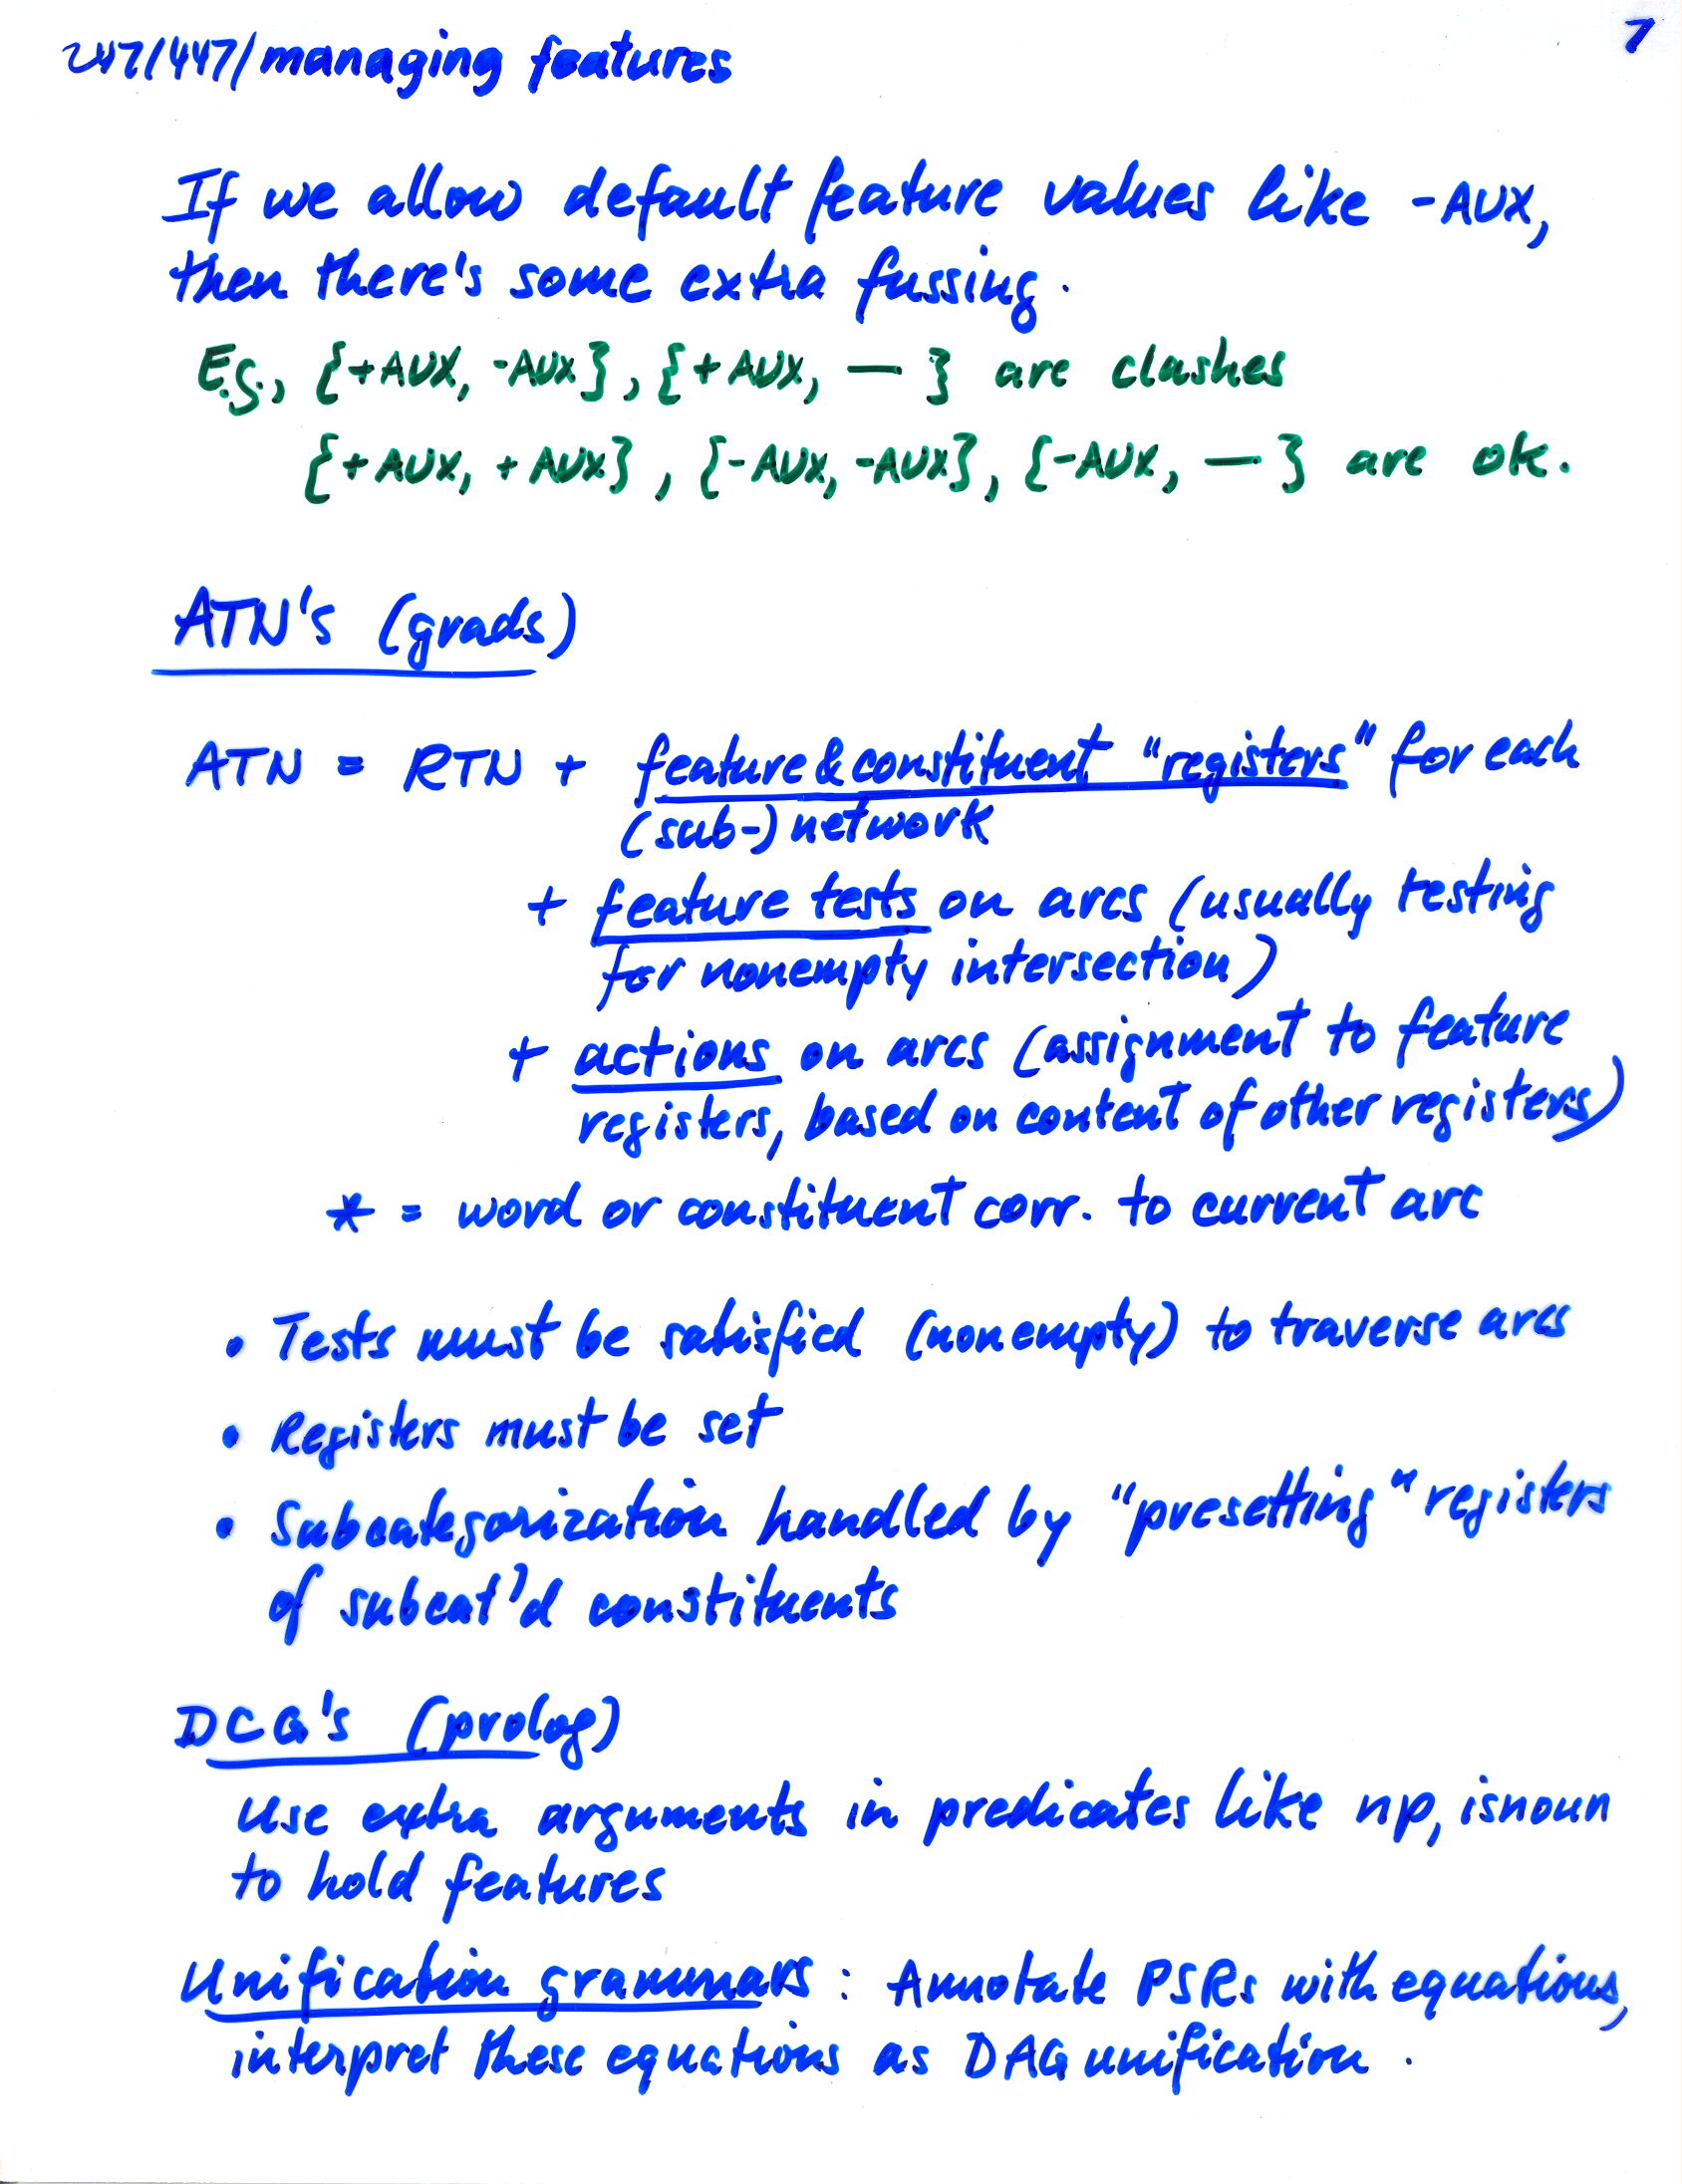 247/447/managing features
7
If we allow default feature values like -AUX,
then there's some extra fussing.
E.g., {+AUX, -AUX}, {+AUX, — } are clashes
{+AUX, +AUX}, {-AUX, -AUX}, {-AUX, — } are ok.
ATN's (grads)
ATN = RTN + feature & constituent "registers" for each
(sub-) network
+ feature tests on arcs (usually testing
for nonempty intersection)
+ actions on arcs (assignment to feature
registers, based on content of other registers)
* = word or constituent corr. to current arc
• Tests must be satisfied (nonempty) to traverse arcs
• Registers must be set
• Subcategorization handled by "presetting" registers
of subcat'd constituents
DCG's (prolog)
Use extra arguments in predicates like np, isnoun
to hold features
Unification grammars : Annotate PSRs with equations,
interpret these equations as DAG unification.